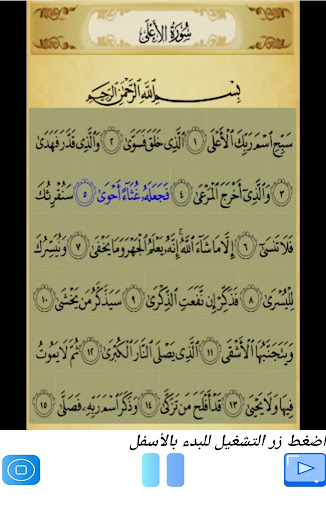 سُورَةُ الأَعْلَىٰ
بِسْمِ اللَّهِ الرَّحْمَٰنِ الرَّحِيمِ
سَبِّحِ اسْمَ رَبِّكَ الْأَعْلَى ١ الَّذِي خَلَقَ فَسَوَّىٰ ٢ وَالَّذِي قَدَّرَ فَهَدَىٰ
٣ وَالَّذِي أَخْرَجَ الْمَرْعَىٰ ٤ فَجَعَلَهُ غُثَاءً أَحْوَىٰ ٥ سَنُقْرِئُكَ
فَلَا تَنسَىٰ ٦ إِلَّا مَا شَاءَ اللَّهُ إِنَّهُ يَعْلَمُ الْجَهْرَ وَمَا يَخْفَىٰ ٧ وَنُيَسِّرُكَ
لِلْيُسْرَىٰ ٨ فَذَكِّرْ إِن نَّفَعَتِ الذِّكْرَىٰ ٩ سَيَذَّكَّرُ مَن يَخْشَىٰ ١٠
وَيَتَجَنَّبُهَا الْأَشْقَى ١١ الَّذِي يَصْلَى النَّارَ الْكُبْرَىٰ ١٢ ثُمَّ لَا يَمُوتُ
فِيهَا وَلَا يَحْيَىٰ ١٣ قَدْ أَفْلَحَ مَن تَزَكَّىٰ ١٤ وَذَكَرَ اسْمَ رَبِّهِ فَصَلَّىٰ ١٥
اضغط زر التشغيل للبدء بالأسفل